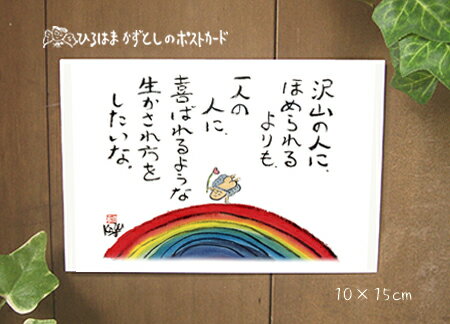 ひろはまかずとしのポストカード
沢山の人に、
ほめられる
よりも、
一人の
人に、
喜ばれるような
生かされ方を
したいな。
10×15cm